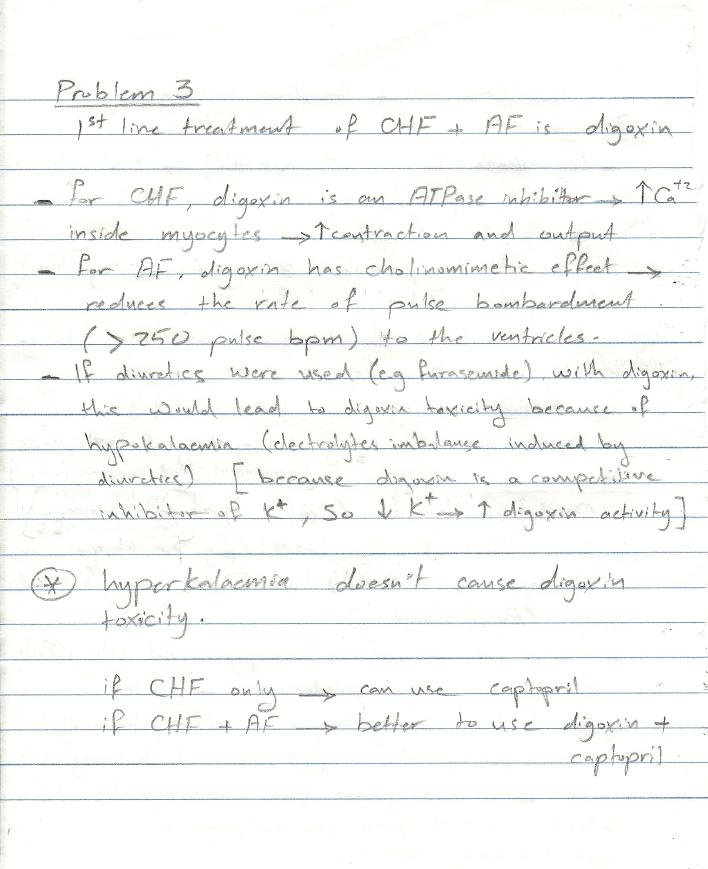 Problem 3
1st line treatment of CHF + AF is digoxin
- for CHF, digoxin is an ATPase inhibitor → ↑Ca+2
inside myocytes → ↑ contraction and output
- for AF, digoxin has cholinomimetic effect →
reduces the rate of pulse bombardment
(> 250 pulse bpm) to the ventricles.
- If diuretics were used (eg furasemide) with digoxin,
this would lead to digoxin toxicity because of
hypokalaemia (electrolytes imbalanse induced by
diuretics) [because digoxin is a competitive
inhibitor of K+, so ↓ K+ → ↑ digoxin activity]
* hyperkalaemia doesn't cause digoxin
toxicity.
if CHF only → can use captopril
if CHF + AF → better to use digoxin +
captopril